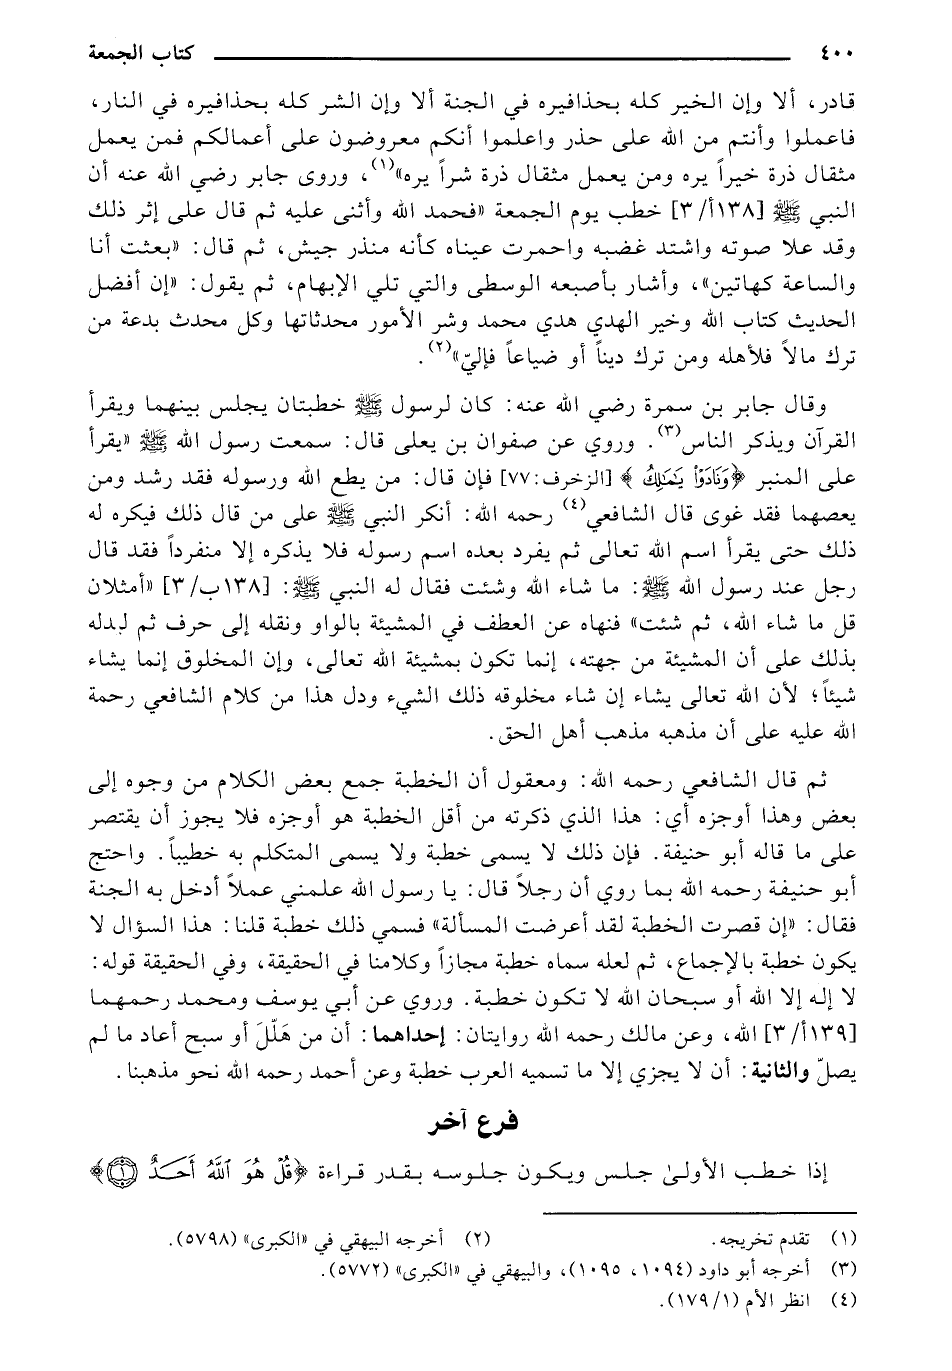 ٤٠٠ كتاب الجمعة
قادر، ألا وإن الخير كله بحذافيره في الجنة ألا وإن الشر كله بحذافيره في النار،
فاعملوا وأنتم من الله على حذر واعلموا أنكم معروضون على أعمالكم فمن يعمل
مثقال ذرة خيراً يره ومن يعمل مثقال ذرة شراً يره»(١)، وروى جابر رضي الله عنه أن
النبي ﷺ [١٣٨أ/ ٣] خطب يوم الجمعة «فحمد الله وأثنى عليه ثم قال على إثر ذلك
وقد علا صوته واشتد غضبه واحمرت عيناه كأنه منذر جيش، ثم قال: «بعثت أنا
والساعة كهاتين»، وأشار بأصبعه الوسطى والتي تلي الإبهام، ثم يقول: «إن أفضل
الحديث كتاب الله وخير الهدي هدي محمد وشر الأمور محدثاتها وكل محدث بدعة من
ترك مالاً فلأهله ومن ترك ديناً أو ضياعاً فإليّ»(٢).
وقال جابر بن سمرة رضي الله عنه: كان لرسول ﷺ خطبتان يجلس بينهما ويقرأ
القرآن ويذكر الناس(٣). وروي عن صفوان بن يعلى قال: سمعت رسول الله ﷺ «يقرأ
على المنبر ﴿وَنَادَوْا۟ يَـٰمَـٰلِكُ﴾ [الزخرف: ٧٧] فإن قال: من يطع الله ورسوله فقد رشد ومن
يعصهما فقد غوى قال الشافعي(٤) رحمه الله: أنكر النبي ﷺ على من قال ذلك فيكره له
ذلك حتى يقرأ اسم الله تعالى ثم يفرد بعده اسم رسوله فلا يذكره إلا منفرداً فقد قال
رجل عند رسول الله ﷺ: ما شاء الله وشئت فقال له النبي ﷺ: [١٣٨ب/ ٣] «أمثلان
قل ما شاء الله، ثم شئت» فنهاه عن العطف في المشيئة بالواو ونقله إلى حرف ثم ليدله
بذلك على أن المشيئة من جهته، إنما تكون بمشيئة الله تعالى، وإن المخلوق إنما يشاء
شيئاً؛ لأن الله تعالى يشاء إن شاء مخلوقه ذلك الشيء ودل هذا من كلام الشافعي رحمة
الله عليه على أن مذهبه مذهب أهل الحق.
ثم قال الشافعي رحمه الله: ومعقول أن الخطبة جمع بعض الكلام من وجوه إلى
بعض وهذا أوجزه أي: هذا الذي ذكرته من أقل الخطبة هو أوجزه فلا يجوز أن يقتصر
على ما قاله أبو حنيفة. فإن ذلك لا يسمى خطبة ولا يسمى المتكلم به خطيباً. واحتج
أبو حنيفة رحمه الله بما روي أن رجلاً قال: يا رسول الله علمني عملاً أدخل به الجنة
فقال: «إن قصرت الخطبة لقد أعرضت المسألة» فسمي ذلك خطبة قلنا: هذا السؤال لا
يكون خطبة بالإجماع، ثم لعله سماه خطبة مجازاً وكلامنا في الحقيقة، وفي الحقيقة قوله:
لا إله إلا الله أو سبحان الله لا تكون خطبة. وروي عن أبي يوسف ومحمد رحمهما
[١٣٩أ/ ٣] الله، وعن مالك رحمه الله روايتان: إحداهما: أن من هَلّلَ أو سبح أعاد ما لم
يصلّ والثانية: أن لا يجزي إلا ما تسميه العرب خطبة وعن أحمد رحمه الله نحو مذهبنا.
فرع آخر
إذا خطب الأولىٰ جلس ويكون جلوسه بقدر قراءة ﴿قُلْ هُوَ ٱللَّهُ أَحَدٌ ۝١﴾
(١) تقدم تخريجه. (٢) أخرجه البيهقي في «الكبرى» (٥٧٩٨).
(٣) أخرجه أبو داود (١٠٩٤، ١٠٩٥)، والبيهقي في «الكبرى» (٥٧٧٢).
(٤) انظر الأم (١/ ١٧٩).